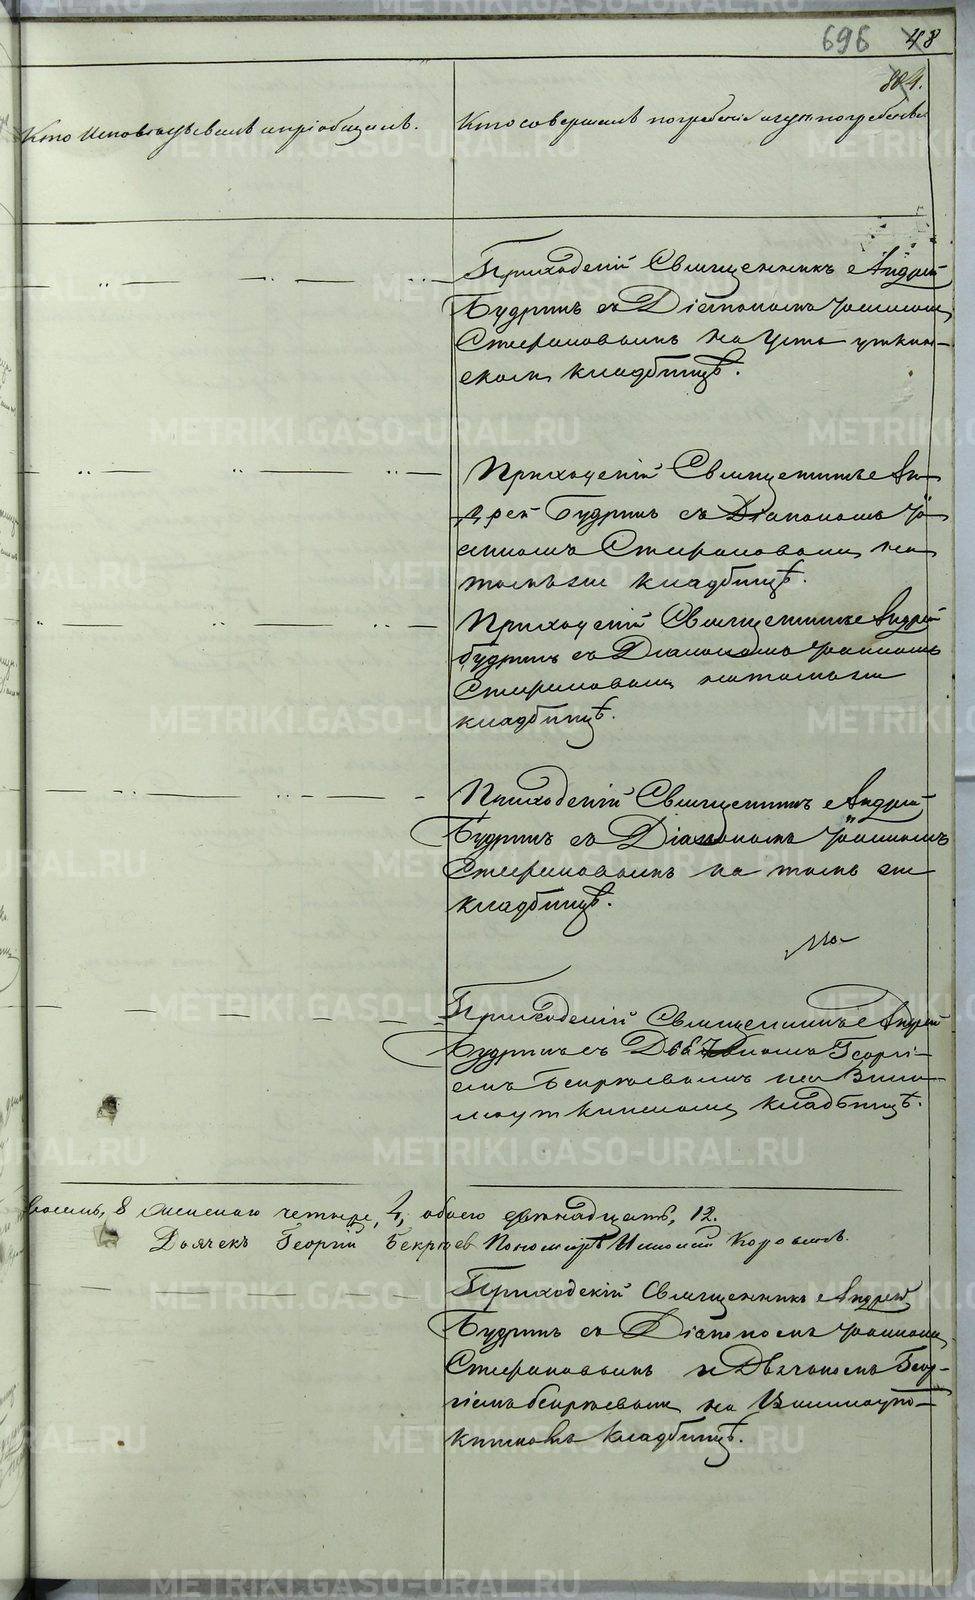 696 48
884.
Кто исповѣдывалъ и пріобщалъ.
Кто совершалъ погребеніе и гдѣ погребены
Приходскій Священникъ Андрей
Будринъ съ Діакономъ Іоанномъ
Стефановымъ на Усть уткин-
скомъ кладбищѣ.
Приходскій Священникъ Ан-
дрей Будринъ съ Діакономъ Іо-
анномъ Стефановымъ на
томъ же кладбищѣ.
Приходскій Священникъ Андрей
Будринъ съ Діакономъ Іоанномъ
Стефановымъ на томъ же
кладбищѣ.
Приходскій Священникъ Андрей
Будринъ съ Діакономъ Іоанномъ
Стефановымъ на томъ же
кладбищѣ.
Приходскій Священникъ Андрей
Будринъ съ Георгі-
емъ Бекрюевымъ на
кладбищѣ.
восемь, 8 женскаго четыре, 4, обоего двѣнадцать, 12.
Дьячекъ Георгій Бекрюев Пономарь Коровинъ.
Приходскій Священникъ Андрей
Будринъ съ Діакономъ Іоанномъ
Стефановымъ и Дьячкомъ Геор-
гіемъ Бекрюевымъ на
кладбищѣ.
METRIKI.GASO-URAL.RU